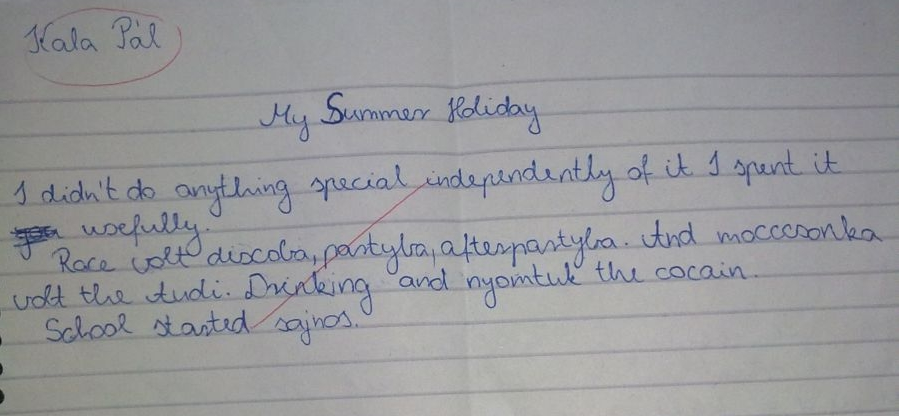 Kala Pál
My Summer Holiday
I didn't do anything special independently of it I spent it
usefully.
Race volt discoba, partyba, afterpartyba. And mocccsonka
volt the Audi. Drinking and nyomtuk the cocain.
School started sajnos.